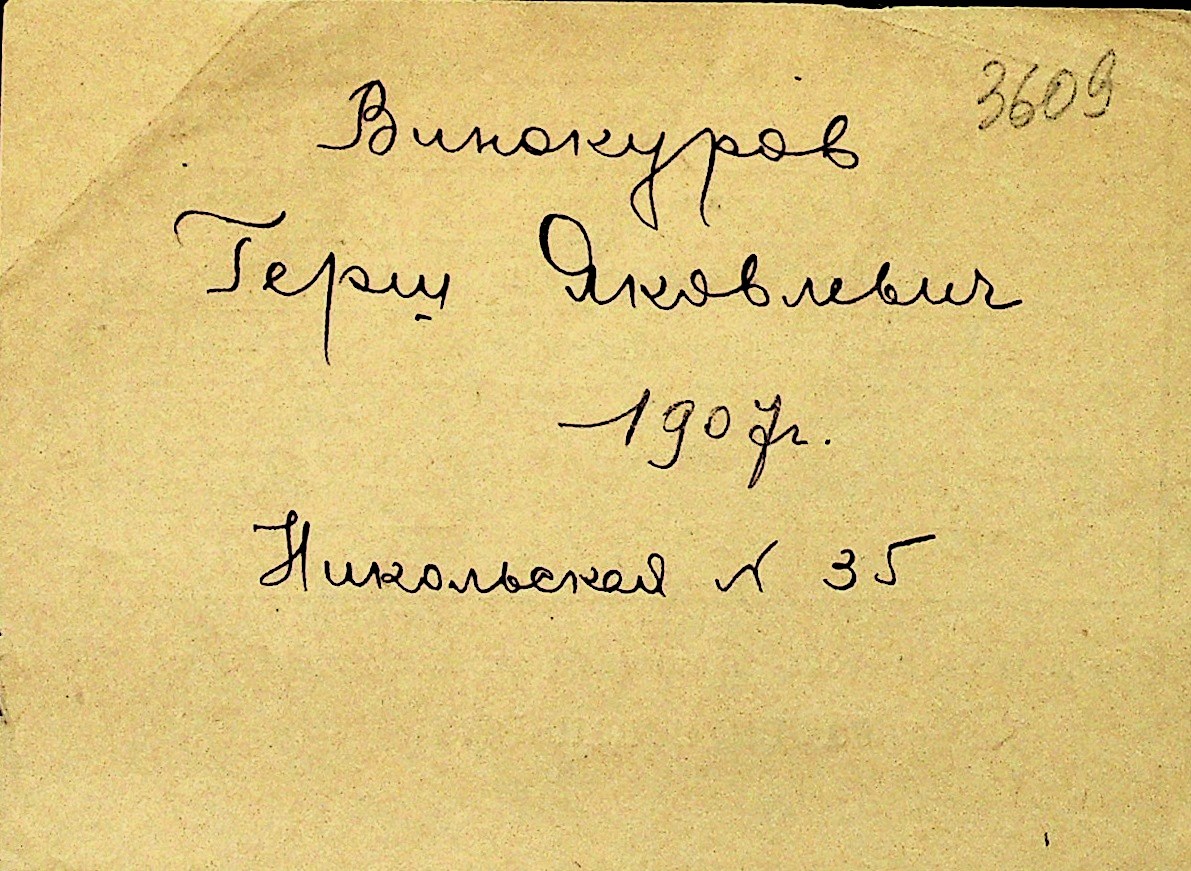 3609
Винокуров
Герш Яковлевич
1907г.
Никольская N 35